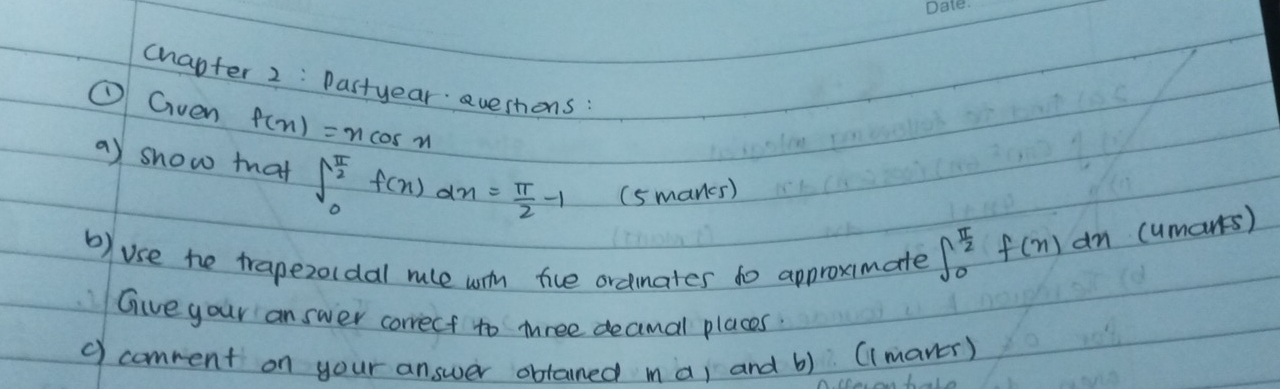 Date.
Chapter 2 : Pastyear. Questions :
① Given f(x) = x cos x
a) show that ∫₀^(π/2) f(x) dx = π/2 - 1 (5 marks)
b) Use the trapezoidal rule with five ordinates to approximate ∫₀^(π/2) f(x) dx (4 marks)
Give your answer correct to three decimal places.
c) comment on your answer obtained in a) and b) (1 marks)